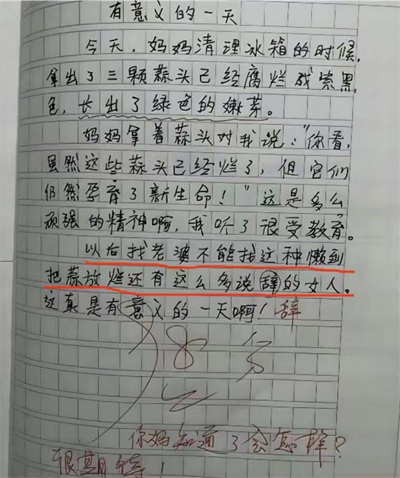 有意义的一天
今天，妈妈清理冰箱的时候，
拿出了三颗蒜头已经腐烂成紫黑
色，长出了绿色的嫩芽。
妈妈拿着蒜头对我说："你看，
虽然这些蒜头已经烂了，但它们
仍然孕育了新生命！"这是多么
顽强的精神啊，我听了很受教育。
以后找老婆不能找这种懒到
把蒜放烂还有这么多说辞的女人。
这真是有意义的一天啊！辞
你妈知道了会怎样？
很期待！